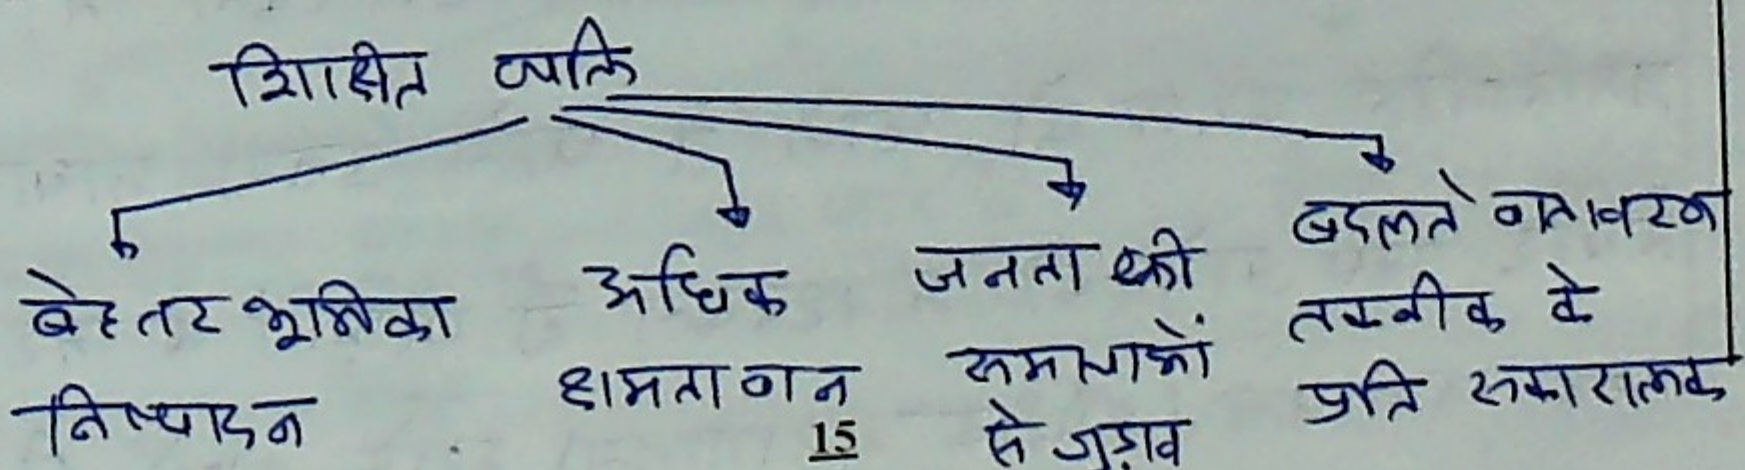 शिक्षित व्यक्ति
बेहतर भूमिका
निष्पादन
अधिक
क्षमतावान
जनता की
समस्याओं
से जुड़ाव
बदलते वातावरण
तकनीक के
प्रति सकारात्मक
15